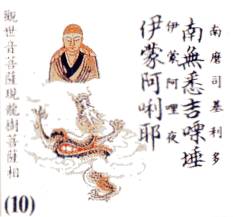 南磨司基利多
南無悉吉㗚埵
伊蒙阿哩夜
伊蒙阿唎耶
觀世音菩薩現龍樹菩薩相
(10)